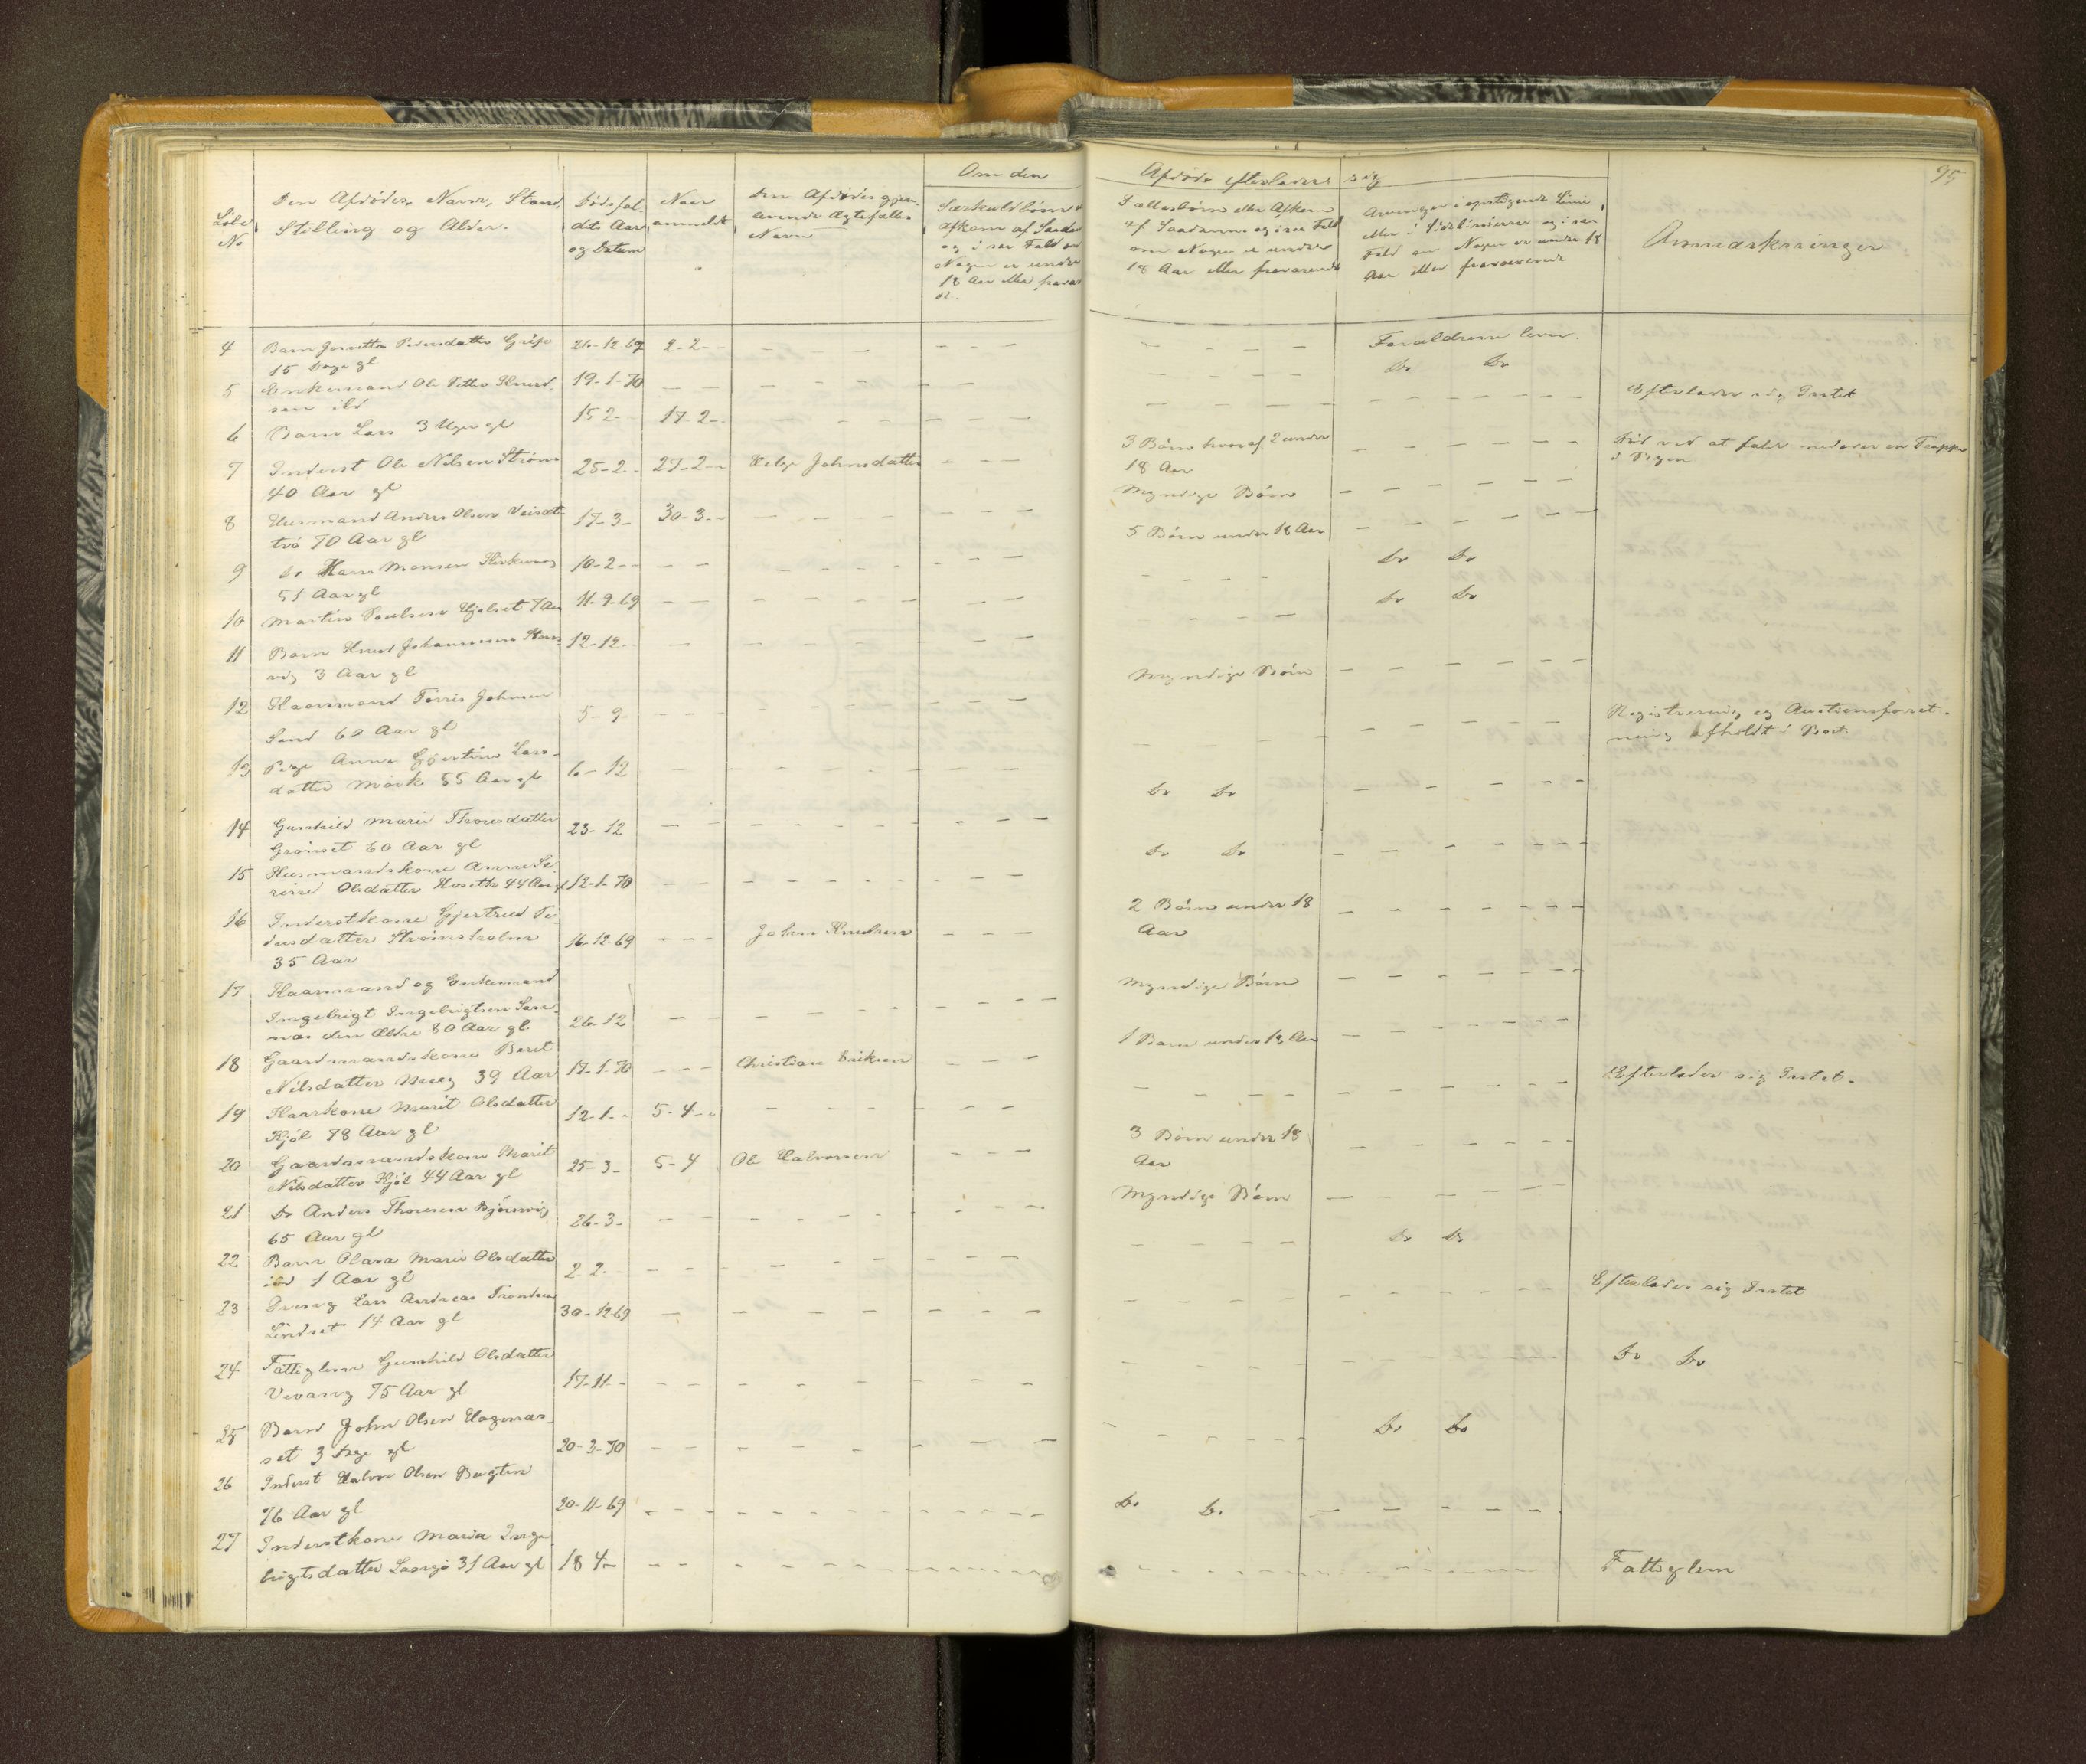 95
Om den Afdøde efterlader sig
Løbe No
Den Afdødes Navn, Stand, Stilling og Alder.
Dødsfaldets Aar og Datum
Naar anmeldt
Den Afdødes gjenlevende Ægtefælles Navn
Særkuldbørn
Afkom af Saadan
og i saa Fald om
Nogen er under
18 Aar eller fravær
Fællesbørn eller Afkom
af Saadanne og i saa Fald
om Nogen er under
18 Aar eller fraværende
Arvinger i opstigende Linie
eller i Sidelinierne og i saa
Fald om Nogen er under 18
Aar eller fraværende
Anmærkninger
4 Barn Pedersdatter 26-12-69 2-2- Forældrene lever.
15 Dage gl
5 Enkemand Ole Knud- 19-1-70 Do Do
sen ibd Efterlader sig Intet
6 Barn Lars 3 Uger gl 15 2- 17-2-
7 Inderst Ole Nilsen Strøm 25-2- 27-2- Johnsdatter 3 Børn hvoraf 2 under Død ved at falde nedover en Trappe
40 Aar gl 18 Aar i Byen
8 Husmand Anders Olsen 17-3- 30-3- Myndige Børn
70 Aar gl
9 Do Hans Monsen 10-2- 5 Børn under 18 Aar
51 Aar gl
10 Martin Poulsen 7 Aar 11-9-69 Do Do
11 Barn Knud Johannesen 12-12- Do Do
3 Aar gl
12 Kaarmand Johnsen 5-9- Myndige Børn
Sand 60 Aar gl
13 Pige Anne Lars- 6-12 Registrering og Auctionsforret-
datter Mørk 55 Aar gl ning afholdt i Boet
14 Gunhild Marie Thoresdatter 23-12 Do Do
Grønset 60 Aar gl
15 Husmandskone Anne Se- 12-1-70 Do Do
rine Olsdatter 44 Aar
16 Inderstkone Gjertrud Pe- 16-12-69 John Knudsen 2 Børn under 18
dersdatter Strømsholm Aar
35 Aar
17 Kaarmand og Enkemand Myndige Børn
Ingebrigt Ingebrigtsen 26-12
den Ældre 80 Aar gl.
18 Gaardmandskone Beret 17-1-70 Christian Eriksen 1 Barn under 18 Aar
Nilsdatter 39 Aar
19 Kaarkone Marit Olsdatter 12-1- 5-4- Efterlader sig Intet.
Kjøl 78 Aar gl
20 Gaardmandskone Marit 25-3- 5-4 Ole Halvorsen 3 Børn under 18
Nilsdatter Kjøl 44 Aar gl Aar
21 Do Anders Thoresen 26-3- Myndige Børn
65 Aar gl
22 Barn Olava Marie Olsdatter 2 2- Do Do
ibd 1 Aar gl
23 Lars Andreas 30-12 69 Efterlader sig Intet
Lindset 14 Aar gl
24 Fattiglem Gunhild Olsdatter 17-11- Do Do
75 Aar gl
25 Barn John Olsen 20-3-70 Do Do
set 3 Dage gl
26 Inderst Halvor Olsen 20-11-69 Do Do
76 Aar gl
27 Inderstkone Maria Inge-
brigtsdatter 31 Aar gl 18 4- Fattiglem